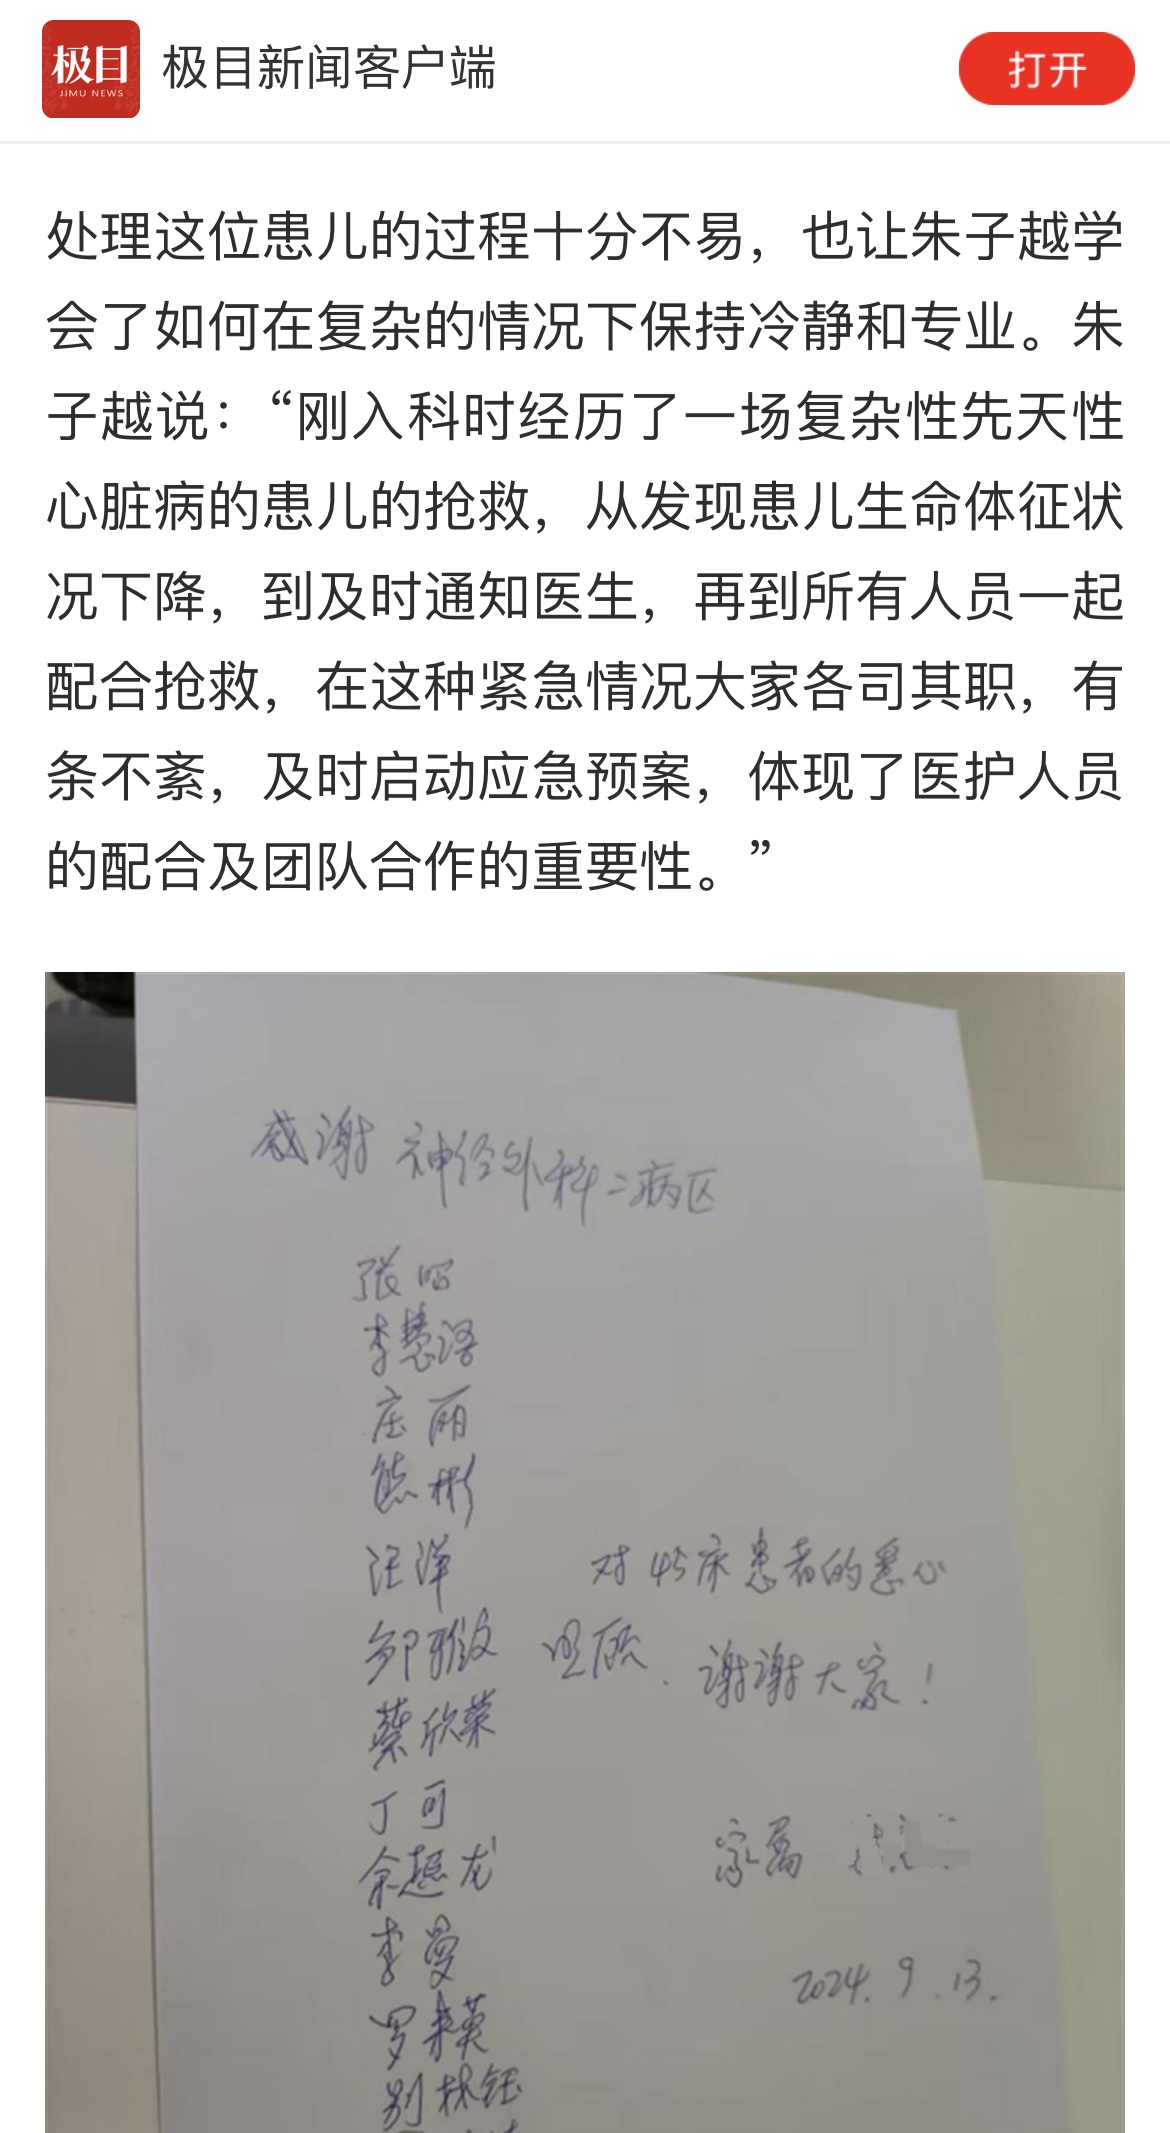 极目
JIMU NEWS
极目新闻客户端
打开
处理这位患儿的过程十分不易，也让朱子越学
会了如何在复杂的情况下保持冷静和专业。朱
子越说：“刚入科时经历了一场复杂性先天性
心脏病的患儿的抢救，从发现患儿生命体征状
况下降，到及时通知医生，再到所有人员一起
配合抢救，在这种紧急情况大家各司其职，有
条不紊，及时启动应急预案，体现了医护人员
的配合及团队合作的重要性。”
感谢 神经外科二病区
张昭
李慧语
庄丽
熊彬
汪洋 对45床患者的悉心
邹雅 照顾. 谢谢大家！
蔡欣荣
丁可
余 龙 家属
李曼
罗来英 2024.9.13.
别林钰